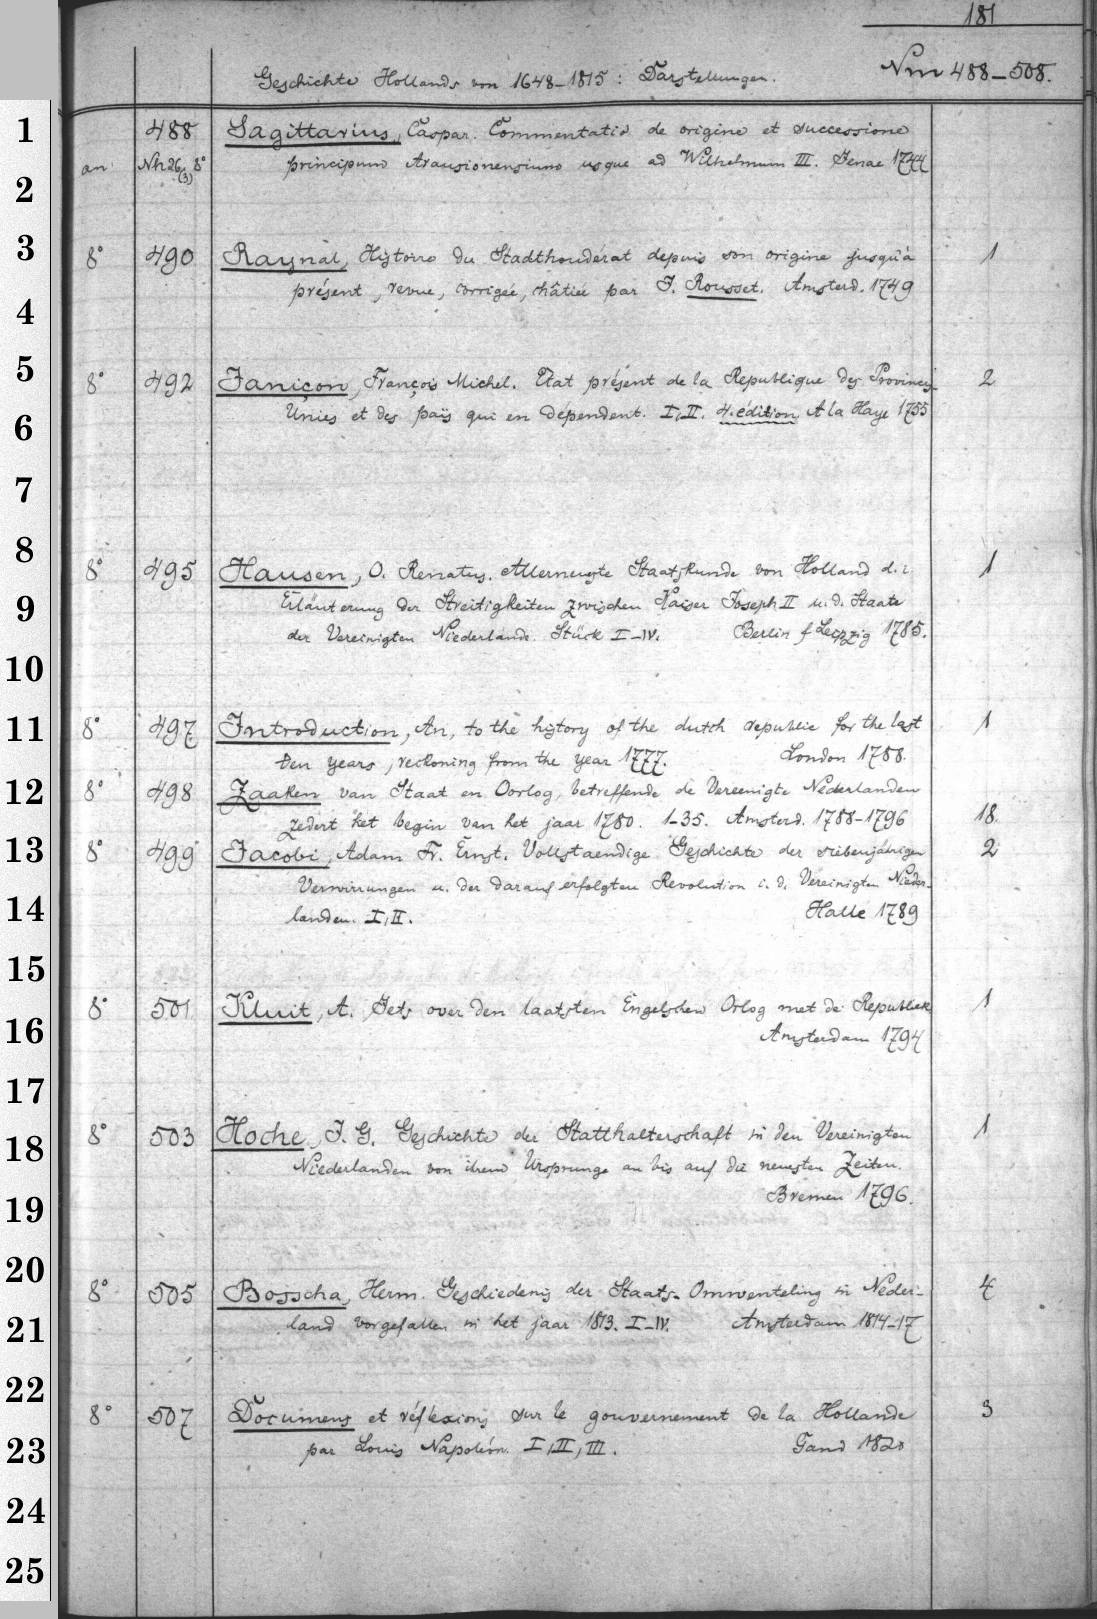 181
Geschichte Hollands von 1648-1815 : Darstellungen. Nm 488-508.
1
488 Sagittarius, Caspar. Commentatio de origine et successione
an Nh 26, 8° principum Arausionensium usque ad Wilhelmum III. Jenae 1744
(3)
2
3
8° 490 Raynal, Histoire du Stadthoudérat depuis son origine jusqu'à 1
présent, revue, corrigée, châtiée par J. Rousset. Amsterd. 1749
4
5
8° 492 Janiçon, François Michel. Etat présent de la Republique des Provinces- 2
Unies et des païs qui en dépendent. I, II. 4. édition A la Haye 1755
6
7
8
8° 495 Hausen, C. Renatus. Allerneuste Staatskunde von Holland d. i. 1
9
Erläuterung der Streitigkeiten zwischen Kaiser Joseph II u. d. Staate
der Vereinigten Niederlande. Stück I-IV. Berlin f Leipzig 1785.
10
11
8° 497 Introduction, An, to the history of the dutch republic for the last 1
ten years, reckoning from the year 1777. London 1788.
12
8° 498 Zaaken van Staat en Oorlog, betreffende de Vereenigte Nederlanden
zedert het begin van het jaar 1780. 1-35. Amsterd. 1788-1796 18.
13
8° 499 Jacobi, Adam Fr. Ernst. Vollstaendige Geschichte der siebenjährigen 2
Verwirrungen u. der darauf erfolgten Revolution i. d. Vereinigten Nieder-
14
landen. I, II. Halle 1789
15
8° 501 Kluit, A. Iets over den laatsten Engelschen Orlog met de Republiek 1
16
Amsterdam 1794
17
8° 503 Hoche, J. G. Geschichte der Statthalterschaft in den Vereinigten 1
18
Niederlanden von ihrem Ursprunge an bis auf die neuesten Zeiten.
Bremen 1796.
19
20
8° 505 Bosscha, Herm. Geschiedenis der Staats-Omwenteling in Neder- 4
21
land vorgefallen in het jaar 1813. I-IV. Amsterdam 1814-17
22
8° 507 Documens et réflexions sur le gouvernement de la Hollande 3
23
par Louis Napoléon. I, II, III. Gand 1820
24
25